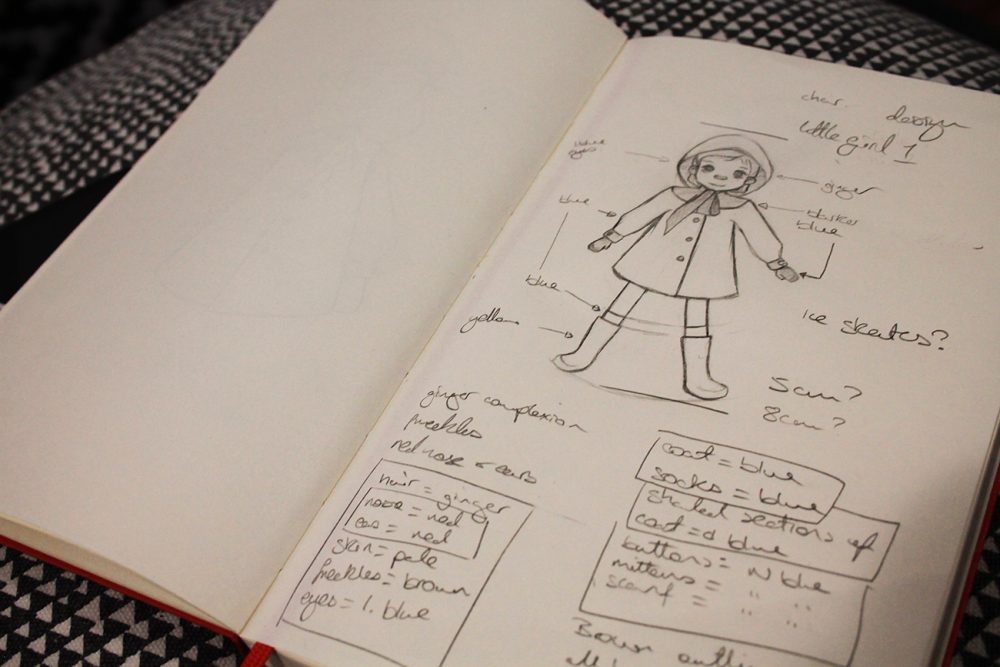 char. design
little girl 1
blue
eyes
ginger
blue
darker
blue
blue
yellow
ice skates?
5cm?
8cm?
ginger complexion
freckles
red nose + ears
hair = ginger
nose = red
ears = red
skin = pale
freckles = brown
eyes = l. blue
coat = blue
socks = blue
shaded sections of
coat = d blue
buttons = N blue
mittens = " "
scarf = " "
Brown